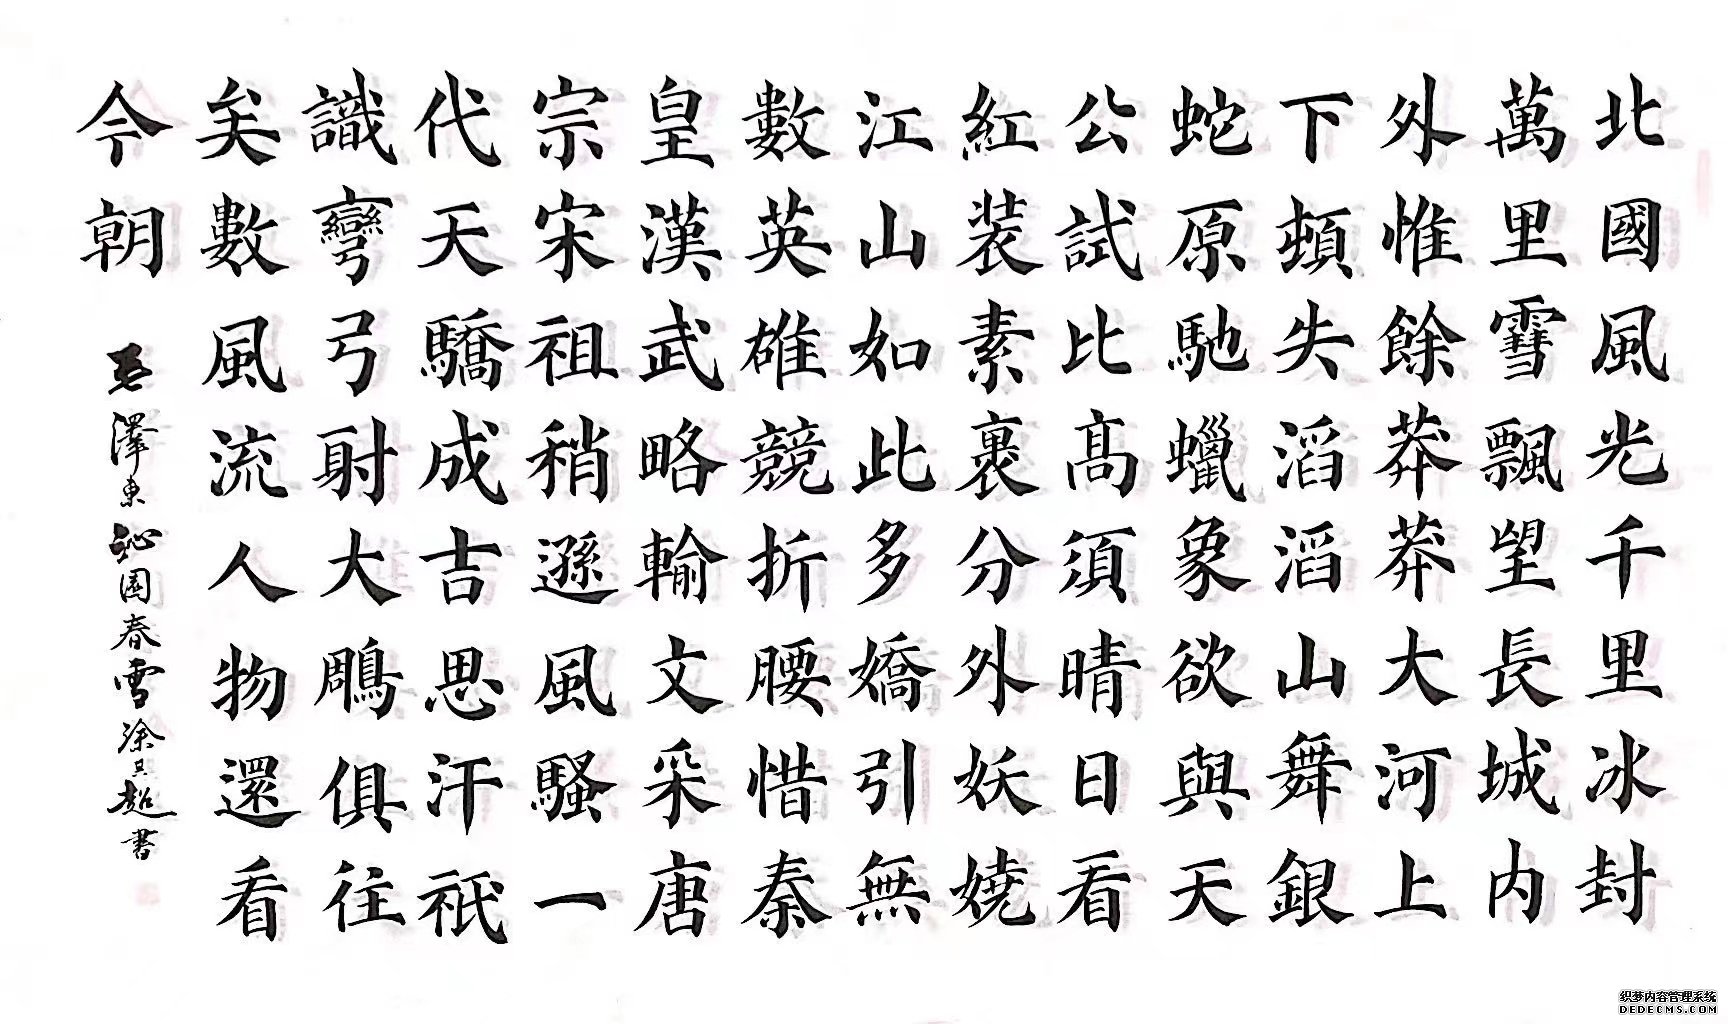 北國風光千里冰封
萬里雪飄望長城内
外惟餘莽莽大河上
下頓失滔滔山舞銀
蛇原馳蠟象欲與天
公試比髙須晴日看
紅装素裹分外妖嬈
江山如此多嬌引無
數英雄競折腰惜秦
皇漢武略輸文采唐
宗宋祖稍遜風騷一
代天驕成吉思汗祇
識彎弓射大鵰俱往
矣數風流人物還看
今朝
毛澤東沁園春雪涂超書
织梦内容管理系统
DEDECMS.COM